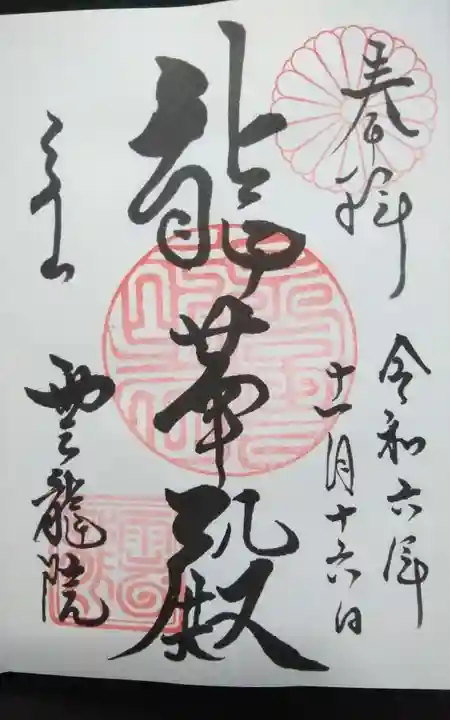 奉拝
令和六年
十一月十六日
龍華殿
泉山
雲龍院